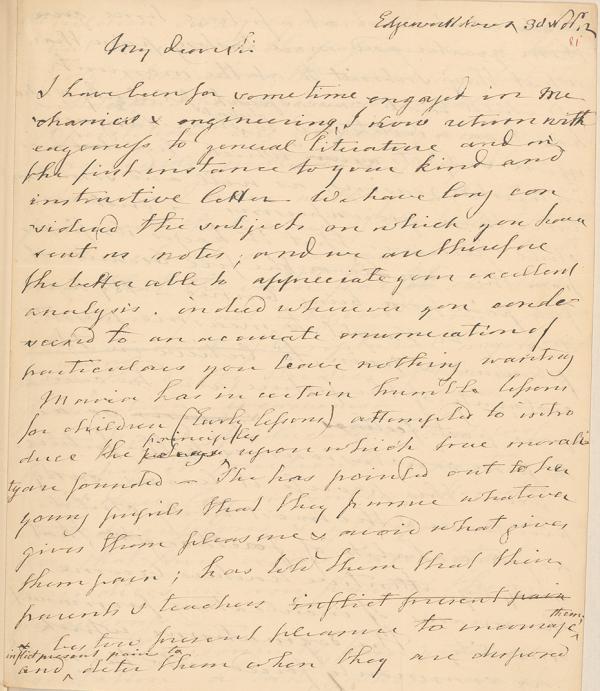 Edgeworthstown 3d Nov.
My dear Sir
I have been for some time engaged in me
chanics & engineering, I now return with
eagerness to general literature and in
the first instance to your kind and
instructive letter. We have long con
sidered the subjects on which you have
sent us notes; and we are therefore
the better able to appreciate your excellent
analysis. indeed wherever you conde-
scend to an accurate enumeration of
particulars you leave nothing wanting
Maria has in certain humble lessons
for children (Early lessons) attempted to intro
principles
duce the upon which true morali
ty are founded — She has pointed out to her
young pupils that they pursue whatever
gives them pleasure & avoid what gives
them pain; has told them that their
parents & teachers inflict present pain
them
bestow present pleasure to encourage
inflict present pain to
and deter them when they are disposed